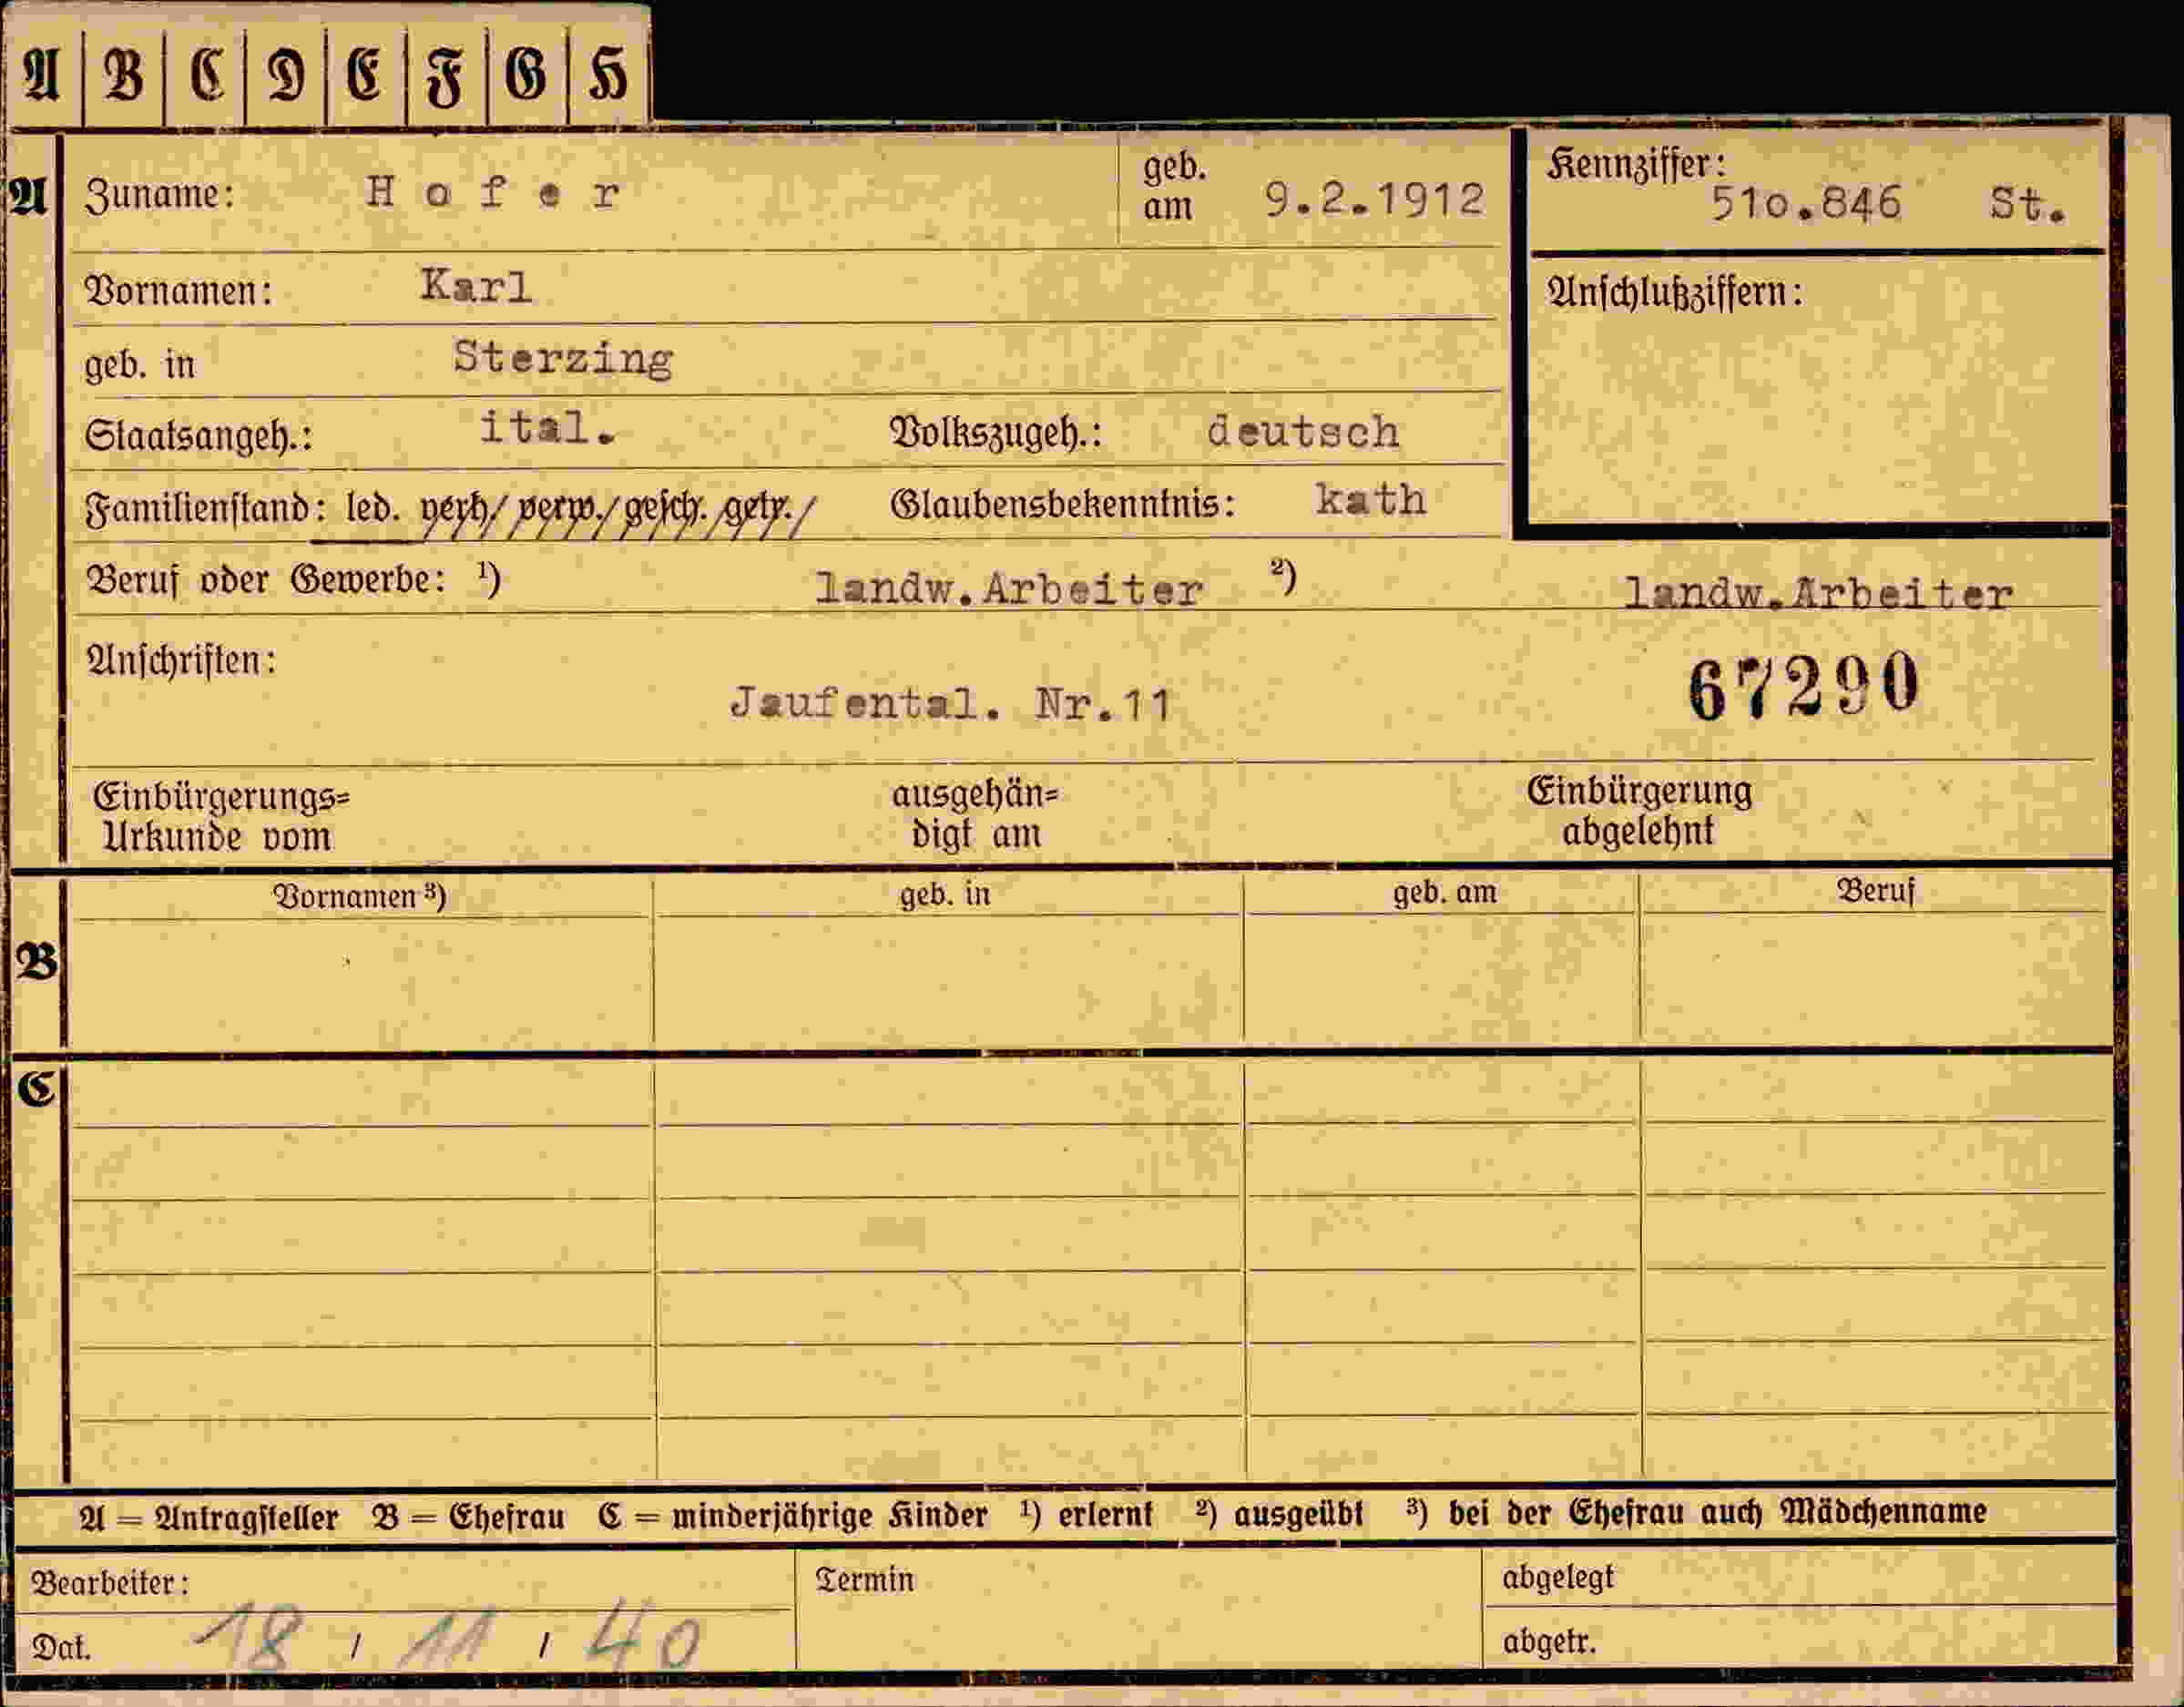 A B C D E F G H
A Zuname: Hofer geb. am 9.2.1912 Kennziffer: 51o.846 St.
Vornamen: Karl Anschlußziffern:
geb. in Sterzing
Staatsangeh.: ital. Volkszugeh.: deutsch
Familienstand: led. verh/ verw./ gesch. getr. Glaubensbekenntnis: kath
Beruf oder Gewerbe: ¹) landw.Arbeiter ²) landw.Arbeiter
Anschriften: 67290
Jaufental. Nr.11
Einbürgerungs= ausgehän= Einbürgerung
Urkunde vom digt am abgelehnt
Vornamen ³) geb. in geb. am Beruf
B
C
A = Antragsteller B = Ehefrau C = minderjährige Kinder ¹) erlernt ²) ausgeübt ³) bei der Ehefrau auch Mädchenname
Bearbeiter: Termin abgelegt
Dat. 18 / 11 / 40 abgetr.